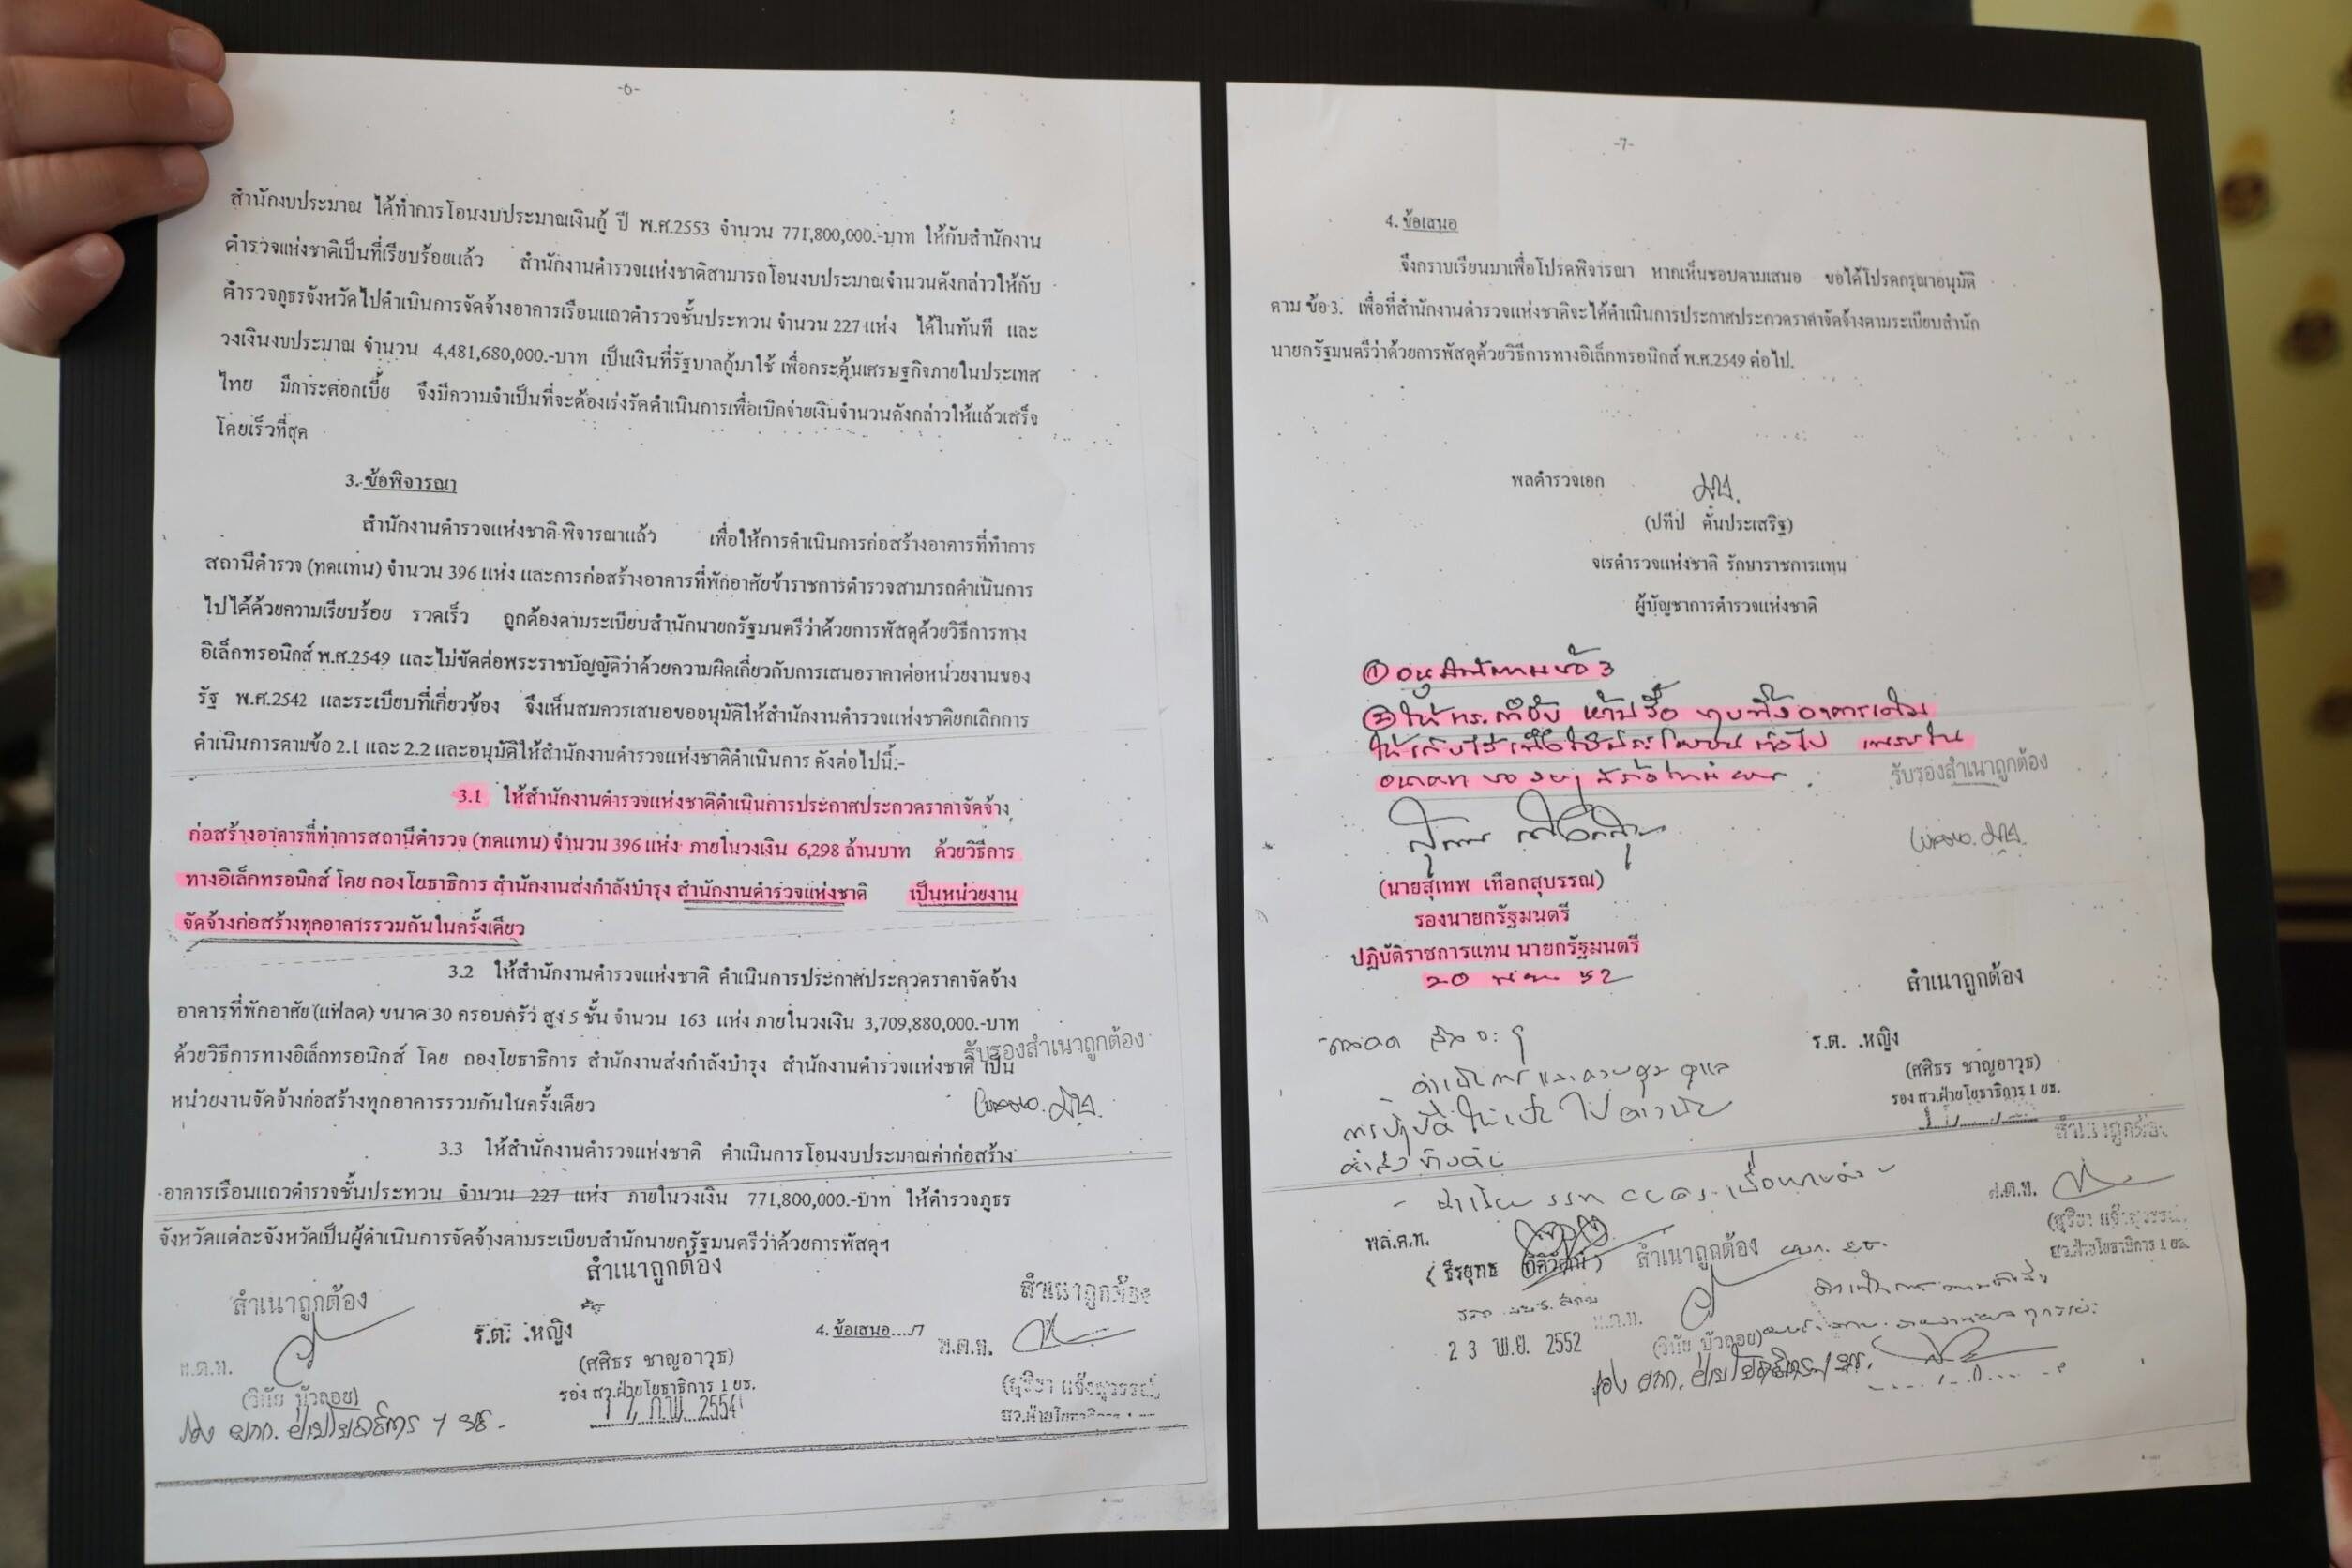 -6-
สำนักงบประมาณ ได้ทำการโอนงบประมาณเงินกู้ ปี พ.ศ.2553 จำนวน 771,800,000.-บาท ให้กับสำนักงาน
ตำรวจแห่งชาติเป็นที่เรียบร้อยแล้ว สำนักงานตำรวจแห่งชาติสามารถโอนงบประมาณจำนวนดังกล่าวให้กับ
ตำรวจภูธรจังหวัดไปดำเนินการจัดจ้างอาคารเรือนแถวตำรวจชั้นประทวน จำนวน 227 แห่ง ได้ในทันที และ
วงเงินงบประมาณ จำนวน 4,481,680,000.-บาท เป็นเงินที่รัฐบาลกู้มาใช้ เพื่อกระตุ้นเศรษฐกิจภายในประเทศ
ไทย มีภาระดอกเบี้ย จึงมีความจำเป็นที่จะต้องเร่งรัดดำเนินการเพื่อเบิกจ่ายเงินจำนวนดังกล่าวให้แล้วเสร็จ
โดยเร็วที่สุด
3. ข้อพิจารณา
สำนักงานตำรวจแห่งชาติพิจารณาแล้ว เพื่อให้การดำเนินการก่อสร้างอาคารที่ทำการ
สถานีตำรวจ (ทดแทน) จำนวน 396 แห่ง และการก่อสร้างอาคารที่พักอาศัยข้าราชการตำรวจสามารถดำเนินการ
ไปได้ด้วยความเรียบร้อย รวดเร็ว ถูกต้องตามระเบียบสำนักนายกรัฐมนตรีว่าด้วยการพัสดุด้วยวิธีการทาง
อิเล็กทรอนิกส์ พ.ศ.2549 และไม่ขัดต่อพระราชบัญญัติว่าด้วยความผิดเกี่ยวกับการเสนอราคาต่อหน่วยงานของ
รัฐ พ.ศ.2542 และระเบียบที่เกี่ยวข้อง จึงเห็นสมควรเสนอขออนุมัติให้สำนักงานตำรวจแห่งชาติยกเลิกการ
ดำเนินการตามข้อ 2.1 และ 2.2 และอนุมัติให้สำนักงานตำรวจแห่งชาติดำเนินการ ดังต่อไปนี้.-
3.1 ให้สำนักงานตำรวจแห่งชาติดำเนินการประกาศประกวดราคาจัดจ้าง
ก่อสร้างอาคารที่ทำการสถานีตำรวจ (ทดแทน) จำนวน 396 แห่ง ภายในวงเงิน 6,298 ล้านบาท ด้วยวิธีการ
ทางอิเล็กทรอนิกส์ โดย กองโยธาธิการ สำนักงานส่งกำลังบำรุง สำนักงานตำรวจแห่งชาติ เป็นหน่วยงาน
จัดจ้างก่อสร้างทุกอาคารรวมกันในครั้งเดียว
3.2 ให้สำนักงานตำรวจแห่งชาติ ดำเนินการประกาศประกวดราคาจัดจ้าง
อาคารที่พักอาศัย (แฟลต) ขนาด 30 ครอบครัว สูง 5 ชั้น จำนวน 163 แห่ง ภายในวงเงิน 3,709,880,000.-บาท
ด้วยวิธีการทางอิเล็กทรอนิกส์ โดย กองโยธาธิการ สำนักงานส่งกำลังบำรุง สำนักงานตำรวจแห่งชาติ เป็น
รับรองสำเนาถูกต้อง
หน่วยงานจัดจ้างก่อสร้างทุกอาคารรวมกันในครั้งเดียว
3.3 ให้สำนักงานตำรวจแห่งชาติ ดำเนินการโอนงบประมาณค่าก่อสร้าง
อาคารเรือนแถวตำรวจชั้นประทวน จำนวน 227 แห่ง ภายในวงเงิน 771,800,000.-บาท ให้ตำรวจภูธร
จังหวัดแต่ละจังหวัดเป็นผู้ดำเนินการจัดจ้างตามระเบียบสำนักนายกรัฐมนตรีว่าด้วยการพัสดุฯ
สำเนาถูกต้อง
สำเนาถูกต้อง
สำเนาถูกต้อง
ร.ต. .หญิง
4. ข้อเสนอ..../7
พ.ต.ท.
(ศศิธร ชาญอาวุธ)
พ.ต.ท.
(วินัย บัวลอย)
รอง สว.ฝ่ายโยธาธิการ 1 ยธ.
(สุริยา แจ้งสุวรรณ์)
17 ก.พ. 2554
สว.ฝ่ายโยธาธิการ 1 ยธ.
รอง ผกก. ฝ่ายโยธาธิการ 1 ยธ.
-7-
4. ข้อเสนอ
จึงกราบเรียนมาเพื่อโปรดพิจารณา หากเห็นชอบตามเสนอ ขอได้โปรดกรุณาอนุมัติ
ตาม ข้อ 3. เพื่อที่สำนักงานตำรวจแห่งชาติจะได้ดำเนินการประกาศประกวดราคาจัดจ้างตามระเบียบสำนัก
นายกรัฐมนตรีว่าด้วยการพัสดุด้วยวิธีการทางอิเล็กทรอนิกส์ พ.ศ.2549 ต่อไป.
พลตำรวจเอก
(ปทีป ตันประเสริฐ)
จเรตำรวจแห่งชาติ รักษาราชการแทน
ผู้บัญชาการตำรวจแห่งชาติ
① อนุมัติตามข้อ 3
② ให้ กำชับ ห้ามรื้อ ทุบทิ้งอาคารเดิม
ให้เก็บไว้เพื่อใช้ประโยชน์ต่อไป เพราะใน
อนาคต
รับรองสำเนาถูกต้อง
(นายสุเทพ เทือกสุบรรณ)
รองนายกรัฐมนตรี
ปฏิบัติราชการแทน นายกรัฐมนตรี
20 พ.ย. 52
สำเนาถูกต้อง
ร.ต. .หญิง
(ศศิธร ชาญอาวุธ)
รอง สว.ฝ่ายโยธาธิการ 1 ยธ.
ดำเนินการและควบคุม ดูแล
การปฏิบัติ ให้เป็นไปตาม
สำเนาถูกต้อง
พ.ต.ท.
(สุริยา แจ้งสุวรรณ์)
สว.ฝ่ายโยธาธิการ 1 ยธ.
พล.ต.ท.
(ธีรยุทธ
สำเนาถูกต้อง
พ.ต.ท.
23 พ.ย. 2552
(วินัย บัวลอย)
รอง ผกก. ฝ่ายโยธาธิการ 1 ยธ.